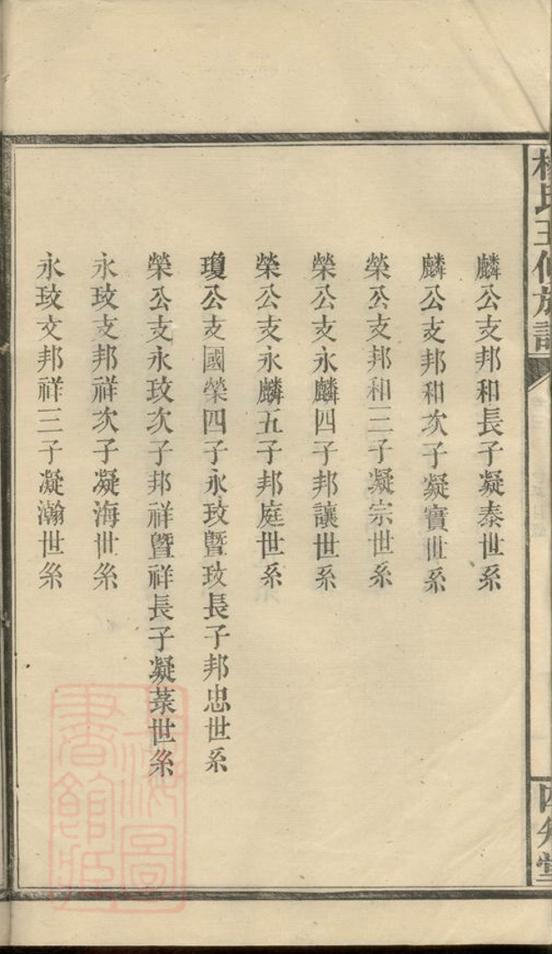 楊氏五修族譜
四知堂
麟公支邦和長子凝泰世系
麟公支邦和次子凝實世系
榮公支邦和三子凝宗世系
榮公支永麟四子邦讓世系
榮公支永麟五子邦庭世系
瓊公支國榮四子永玟暨玟長子邦忠世系
榮公支永玟次子邦祥暨祥長子凝菜世系
永玟支邦祥次子凝海世系
永玟支邦祥三子凝瀚世系
上海圖書館藏